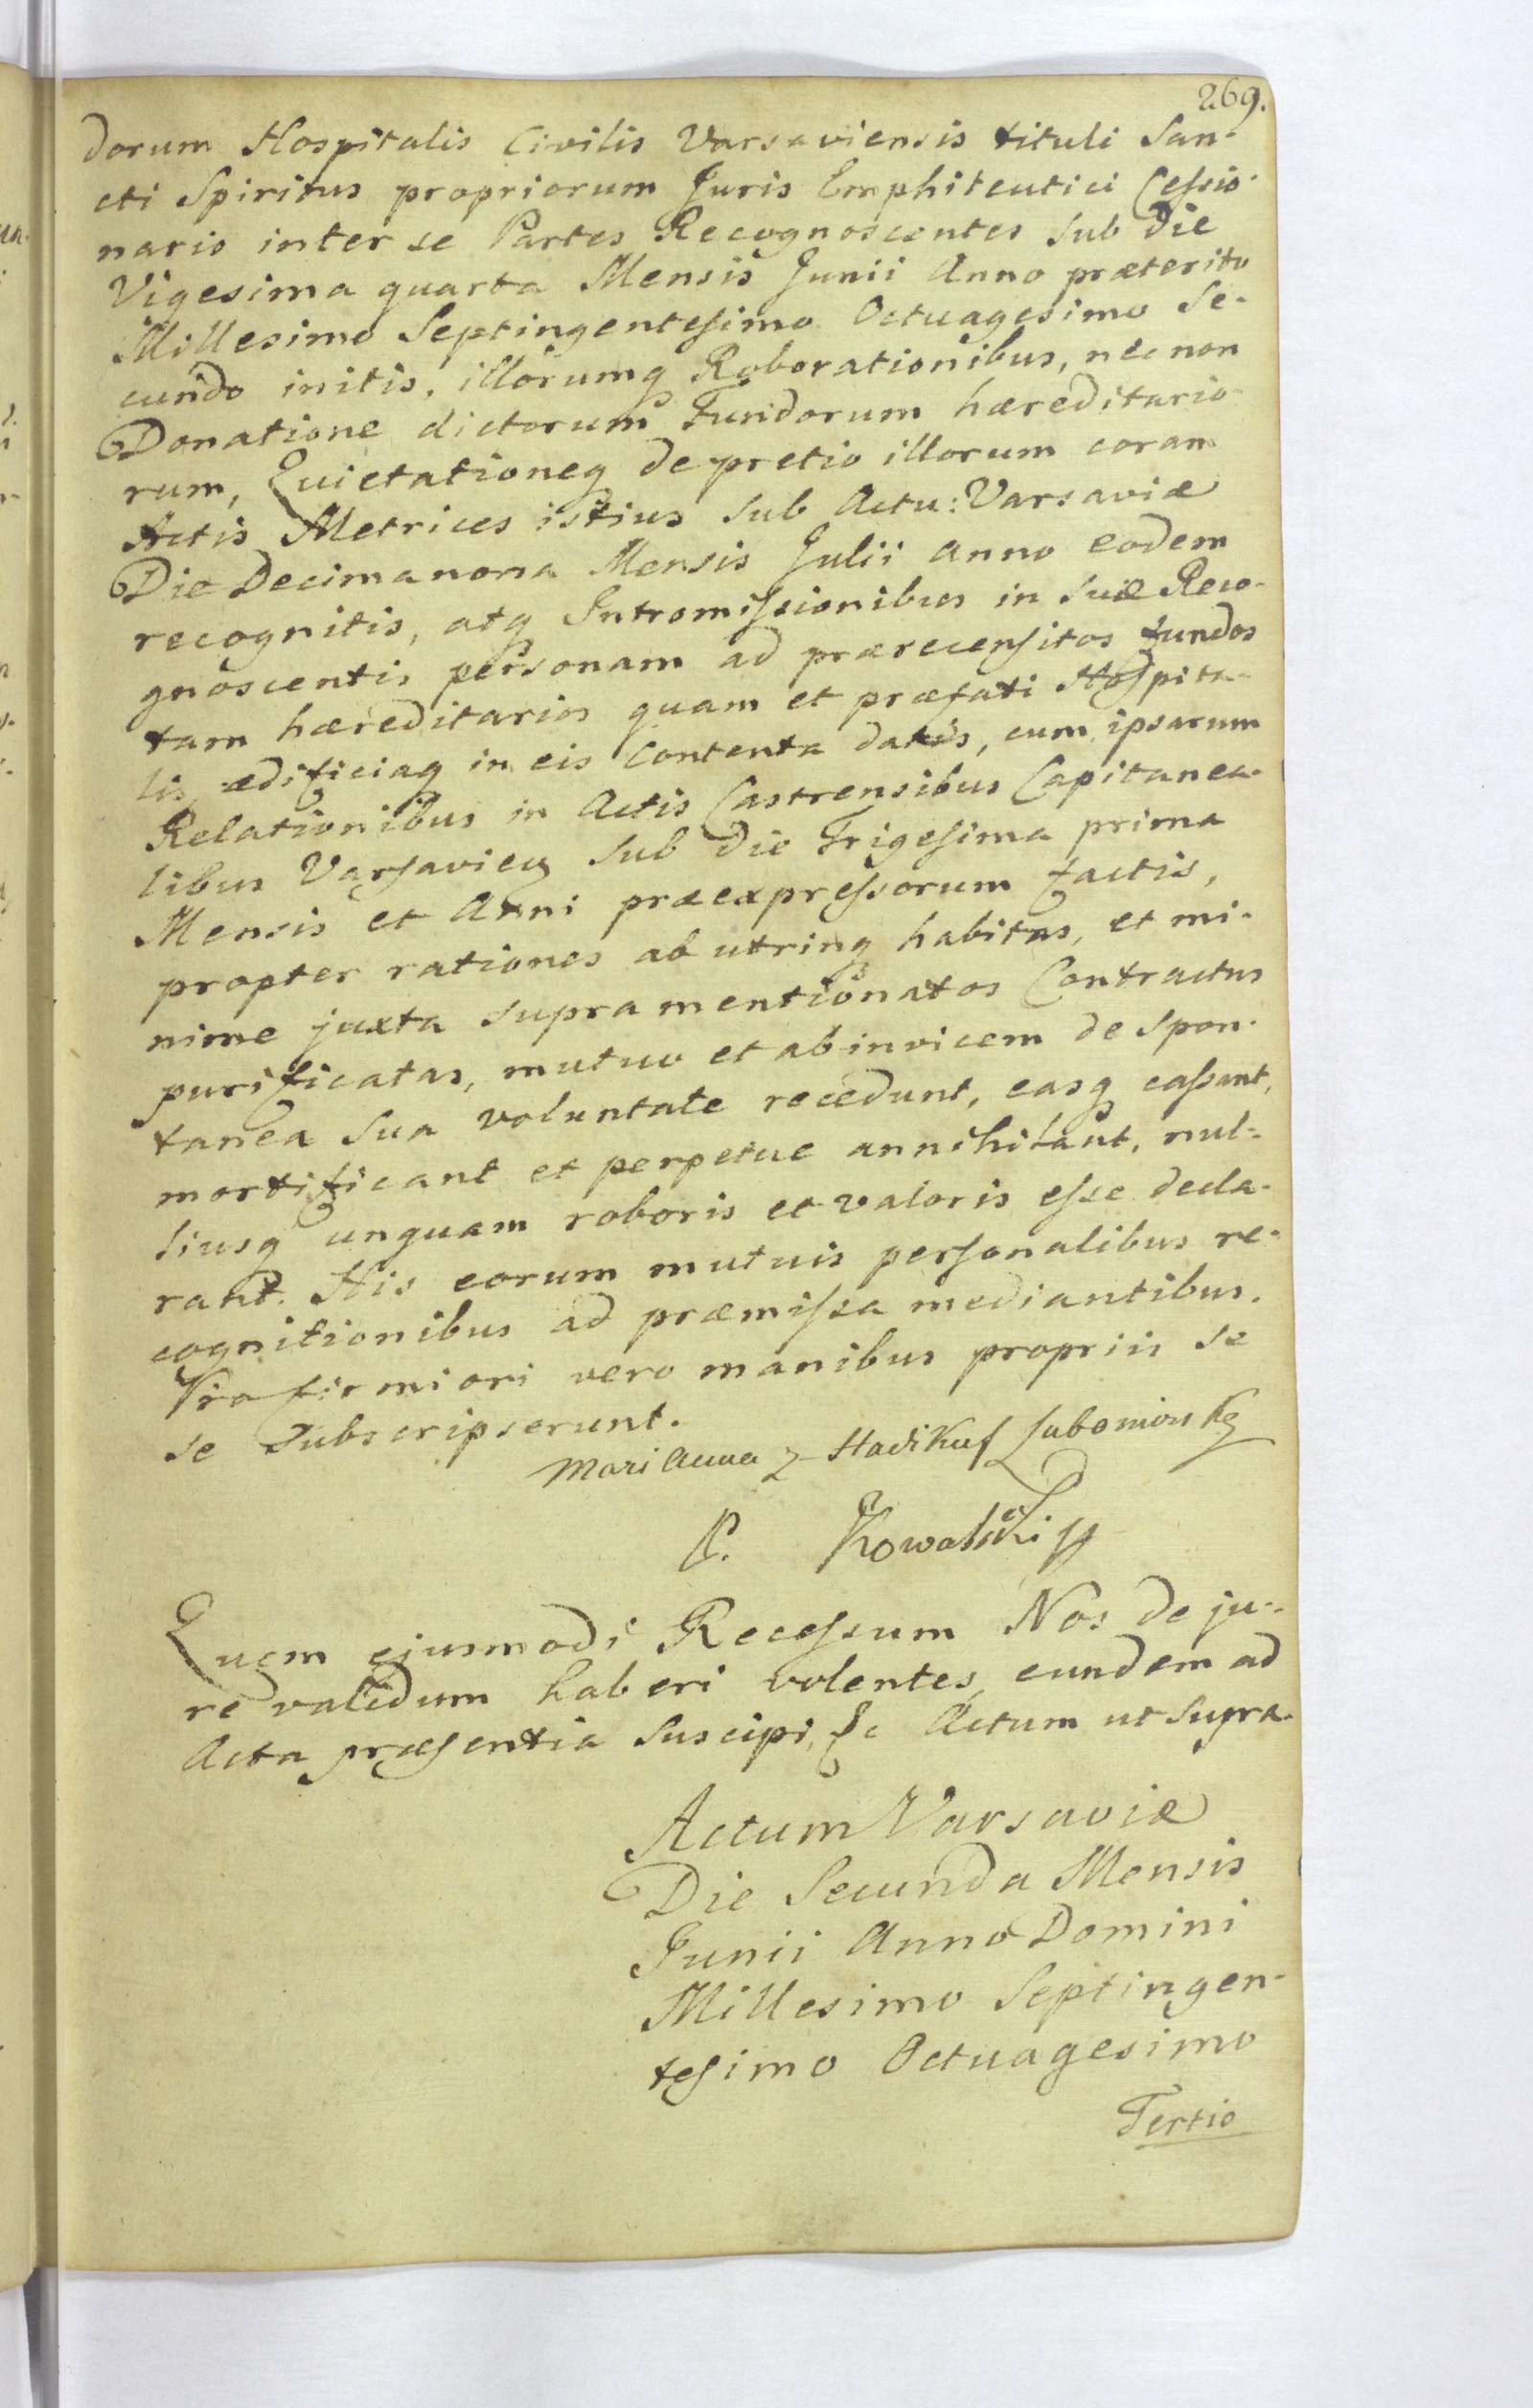 269.
dorum Hospitalis Civilis Varsaviensis tituli San-
cti Spiritus propriorum Juris Emphiteutici Cessio-
nario inter se Partes Recognoscentes sub Die
Vigesima quarta Mensis Junii Anno præterito
Millesimo Septingentesimo Octuagesimo Se-
cundo initis, illorumq Roborationibus, nec non
Donatione dictorum Fundorum hæreditario-
rum, Quietationeq de pretio illorum coram
Actis Metrices istius sub Actu: Varsaviæ
Die Decimanona Mensis Julii Anno eodem
recognitis, atq Intromissionibus in suæ Reco-
gnoscentis personam ad præcensitos fundos
tam hæreditarios quam et præfati Hospita-
lis ædificiaq in eis contenta datis, cum ipsarum
Relationibus in Actis Castrensibus Capitanea-
libus Varsavien sub Die Trigesima prima
Mensis et Anni præexpressorum factis,
propter rationes ab utrinq habitas, et mi-
nime juxta supra mentionatos Contractus
purificatas, mutuo et ab invicem de spon-
tanea sua voluntate recedunt, easq cassant,
mortificant et perpetue annihilant, nul-
liusq unquam roboris et valoris esse decla-
rant. His eorum mutuis personalibus re-
cognitionibus ad præmissa mediantibus.
Pro firmiori vero manibus propriis se
se subscripserunt.
Mari Anna z Hadikuf Lubomirska
P. Kowalski
Quem ejusmodi Recessum Nos de ju-
re validum haberi volentes, eundem ad
Acta præsentia suscipi, &c Actum ut supra.
Actum Varsaviæ
Die Secunda Mensis
Junii Anno Domini
Millesimo Septingen-
tesimo Octuagesimo
Tertio